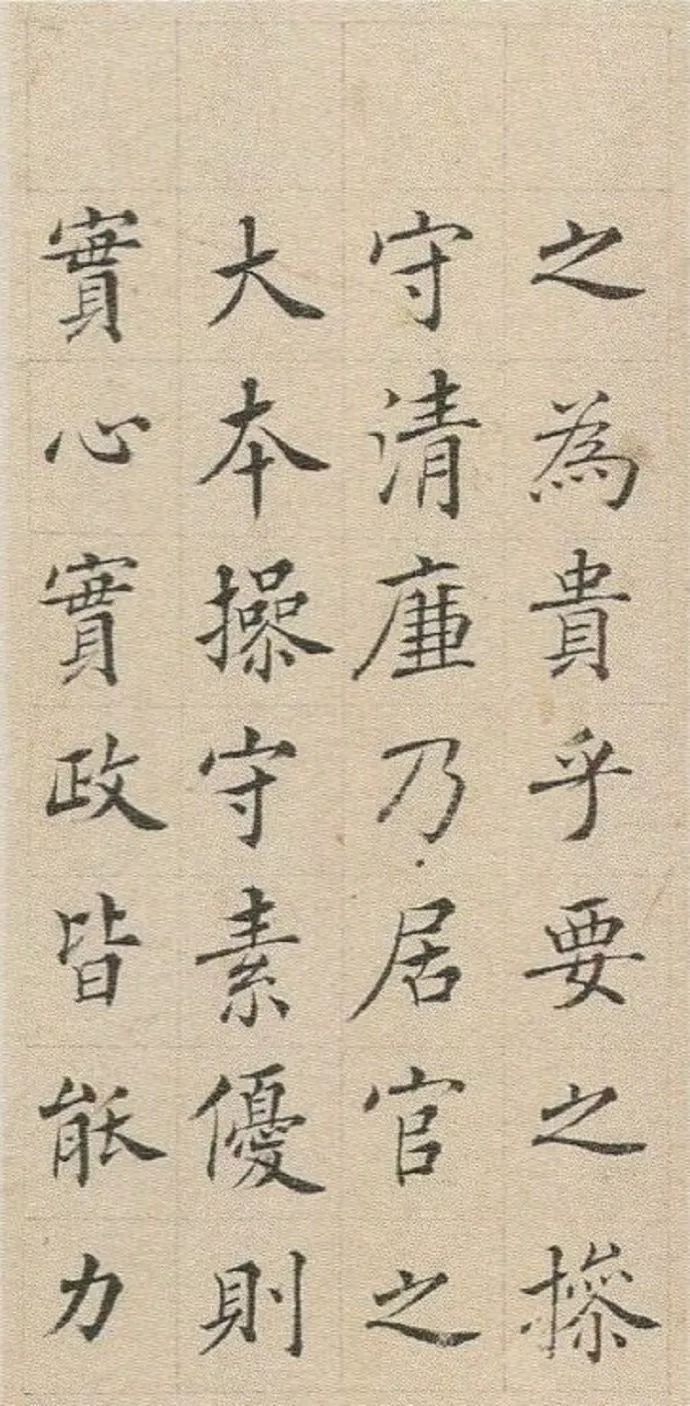 之為貴乎要之操
守清廉乃居官之
大本操守素優則
實心實政皆能力